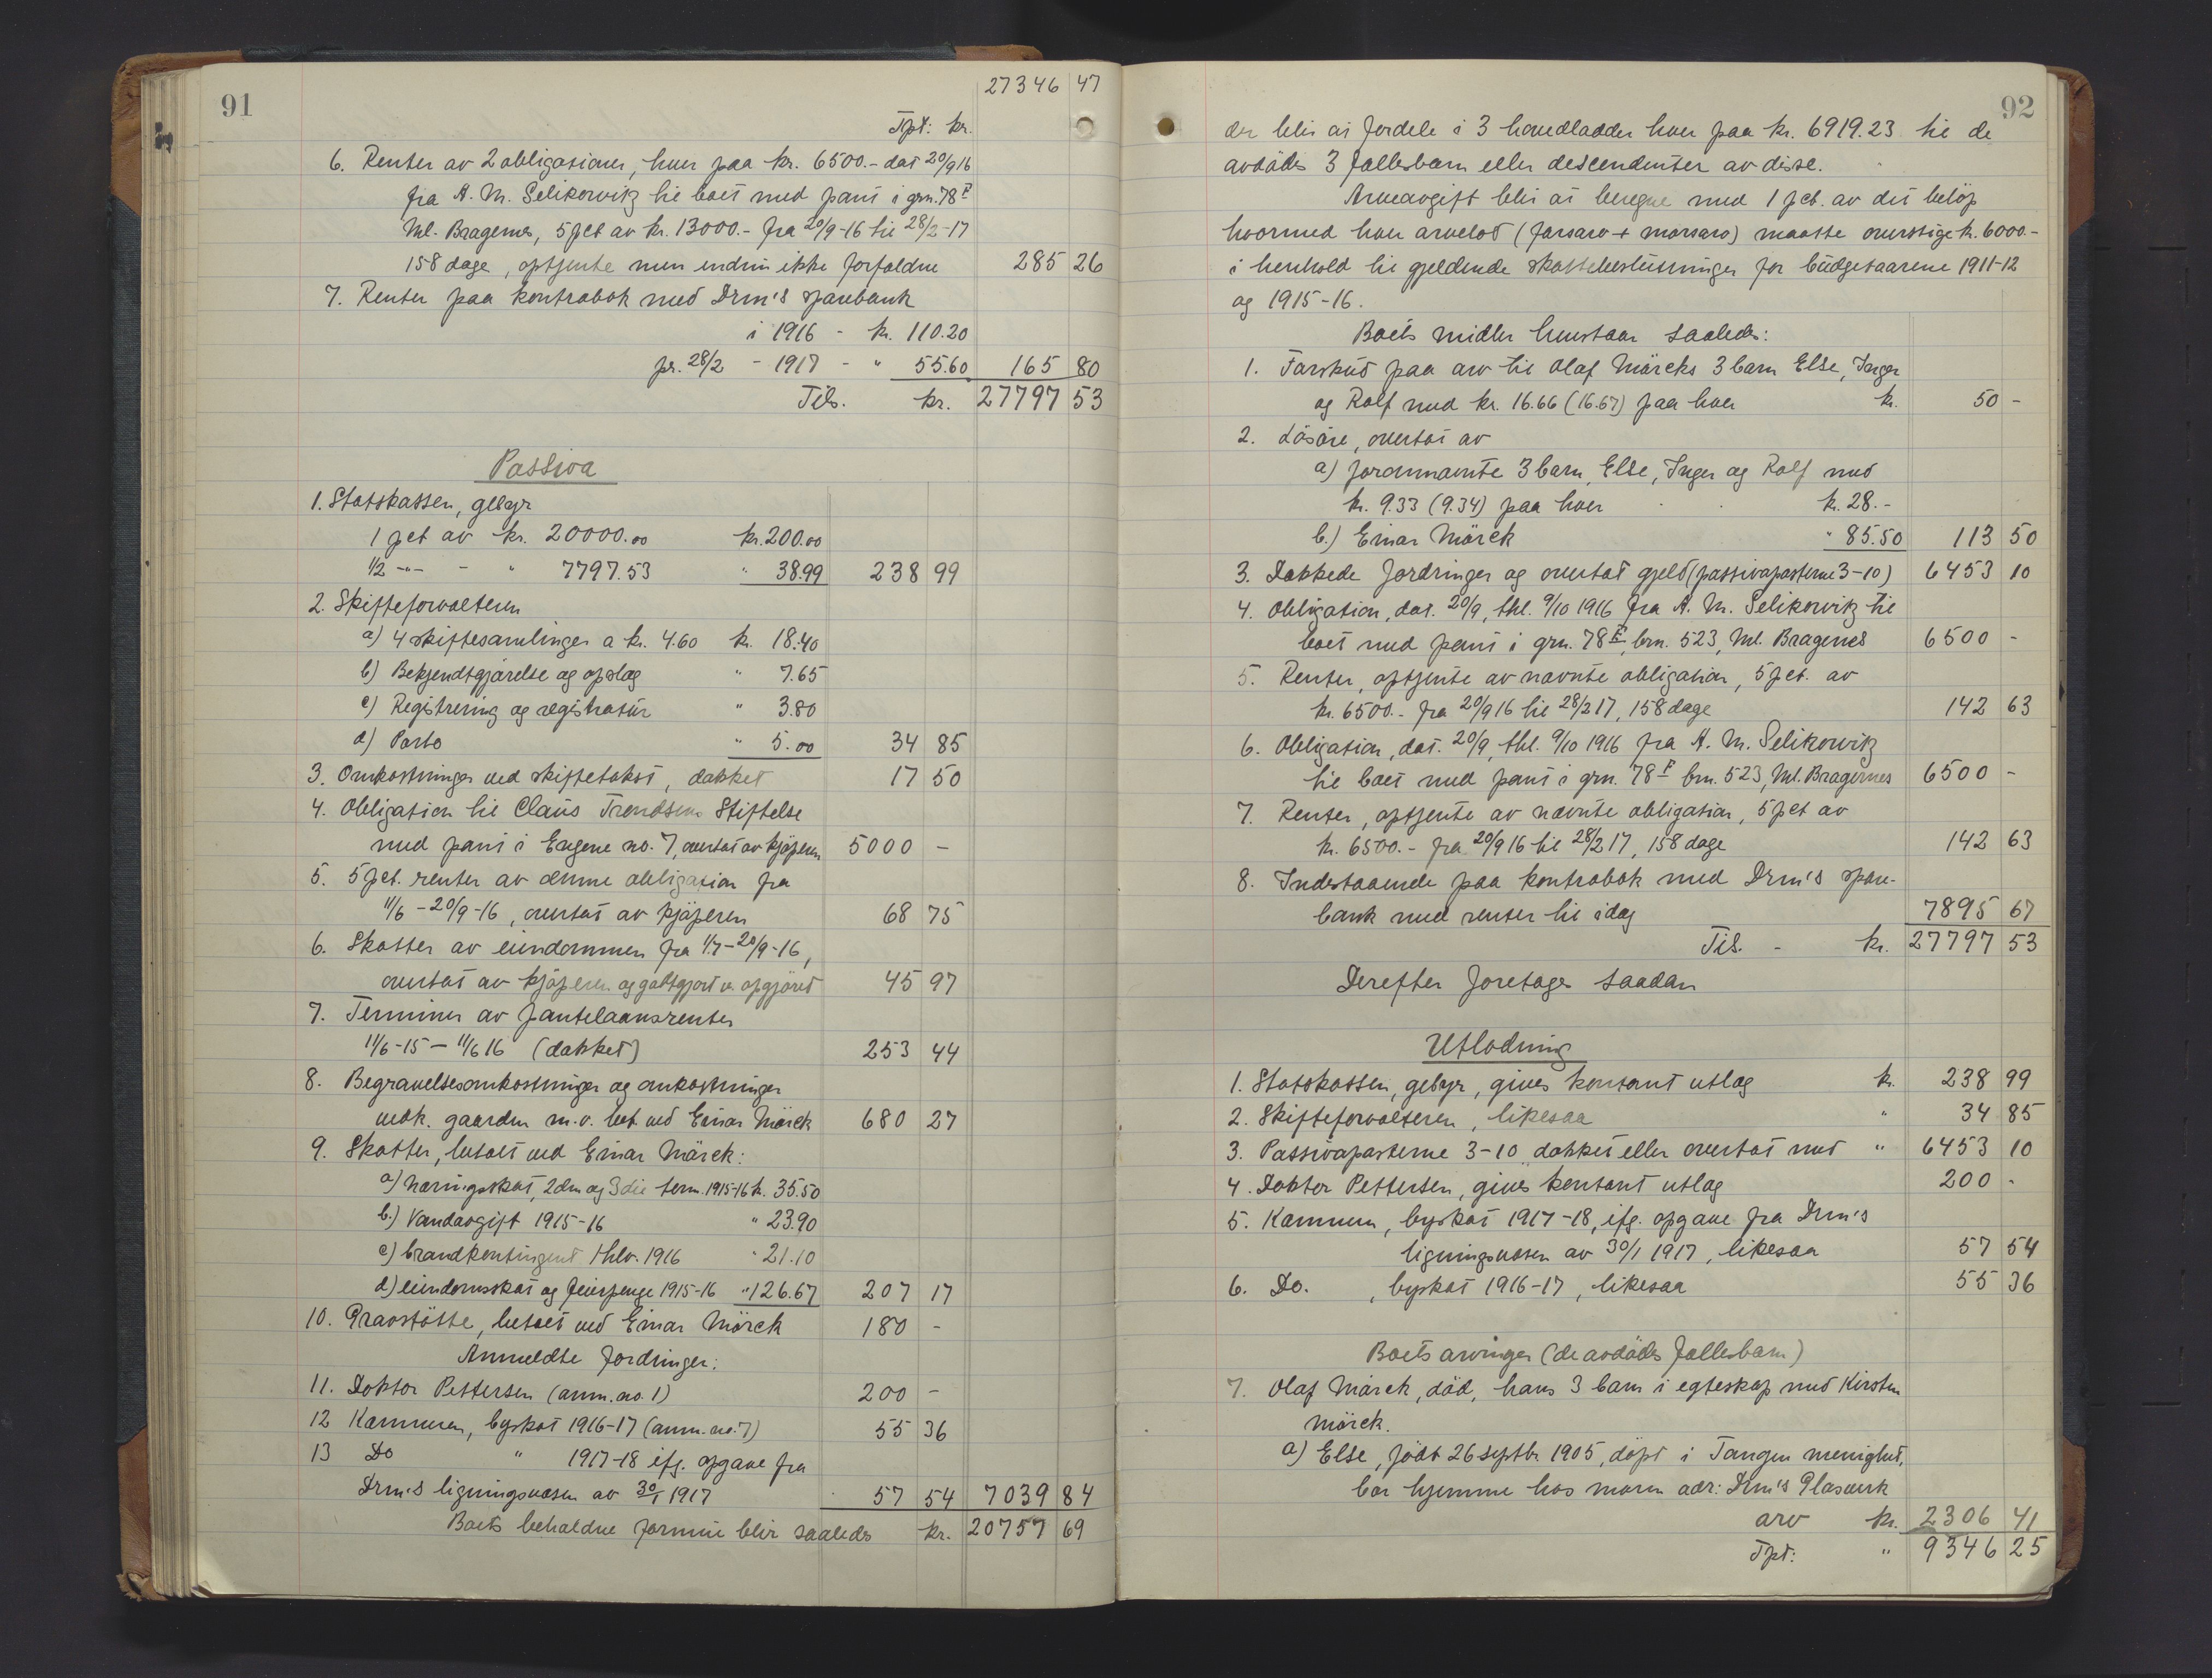 91
27346 47
Tpt: kr.
6. Renter av 2 obligasioner, hver paa kr. 6500.- dat 20/9 16
fra A. M. Selikowitz til boet med pant i grn. 78 F
Ml. Bragernes, 5 pct av kr. 13000.- fra 20/9-16 til 28/2-17
158 dage, optjente men endnu ikke forfaldne 285 26
7. Renter paa kontrabok med Drm's sparebank
i 1916 - kr. 110.20
pr. 28/2 - 1917 - " 55.60 165 80
Tils. kr. 27797 53
Passiva
1. Statskassen, gebyr
1 pct av kr. 20000.00 kr. 200.00
1/2 -"- - " 7797.53 " 38.99 238 99
2. Skifteforvalteren
a) 4 skiftesamlinger a kr. 4.60 kr. 18.40
b) Bekjendtgjörelse og opslag " 7.65
c) Registrering og registratur " 3.80
d) Porto " 5.00 34 85
3. Omkostninger ved skiftetakst, dækket 17 50
4. Obligation til Claus Trondsens Stiftelse
med pant i Engene no. 7, overtat av kjöperen 5000 -
5. 5 pct. renter av denne obligation fra
11/6 - 20/9-16, overtat av kjöperen 68 75
6. Skatter av eiendommen fra 1/7-20/9-16,
overtat av kjöperen og godtgjort v. opgjöret 45 97
7. Terminer av pantelaansrenter
11/6-15 - 11/6 16 (dækket) 253 44
8. Begravelsesomkostninger og omkostninger
vedk. gaarden m.v. bet. ved Einar Mörck 680 27
9. Skatter, betalt ved Einar Mörck:
a) næringsskat, 2den og 3die term. 1915-16 k. 35.50
b.) Vandavgift 1915-16 " 23.90
c) brandkontingent 1 hlv. 1916 " 21.10
d) eiendomsskat og feierpenge 1915-16 " 126.67 207 17
10. Gravstötte, betalt ved Einar Mörck 180 -
Anmeldte fordringer:
11. Doktor Pettersen (anm. no. 1) 200 -
12 Kæmneren, byskat 1916-17 (anm. no. 7) 55 36
13 Do " 1917-18 ifg. opgave fra
Drm.s ligningsvæsen av 30/1 1917 57 54 7039 84
Boets beholdne formue blir saaledes kr. 20757 69
92
der blir at fordele i 3 hovedlodder hver paa kr. 6919.23 til de
avdödes 3 fællesbarn eller descendenter av disse.
Arveavgift blir at beregne med 1 pct. av det belöp
hvormed hver arvelod (farsarv + morsarv) maatte overstige k. 6000.-
i henhold til gjeldende skattebeslutninger for budgetaarene 1911-12
og 1915-16.
Boets midler henstaar saaledes:
1. Forskud paa arv til Olaf Mörcks 3 barn Else, Inger
og Rolf med kr. 16.66 (16.67) paa hver k. 50 -
2. Lösöre, overtat av
a) forannævnte 3 barn, Else, Inger og Rolf med
kr. 9.33 (9.34) paa hver kr. 28.-
b.) Einar Mörck " 85.50 113 50
3. Dækkede fordringer og overtat gjeld (passivaposterne 3-10) 6453 10
4. Obligation, dat. 20/9, thl. 9/10 1916 fra A. M. Selikowitz til
boet med pant i grn. 78 F, brn. 523, Ml. Bragernes 6500 -
5. Renter, optjente av nævnte obligation, 5 pct. av
kr. 6500.- fra 20/9 16 til 28/2 17, 158 dage 142 63
6. Obligation, dat. 20/9, thl. 9/10 1916 fra A. M. Selikowitz
til boet med pant i grn. 78 F brn. 523, Ml. Bragernes 6500 -
7. Renter, optjente av nævnte obligation, 5 pct av
kr. 6500.- fra 20/9 16 til 28/2 17, 158 dage 142 63
8. Indestaaende paa kontrabok med Drm's spare-
bank med renter til idag 7895 67
Tils. - kr. 27797 53
Derefter foretages saadan
Utlodning
1. Statskassen, gebyr, gives kontant utlæg k. 238 99
2. Skifteforvalteren, likesaa " 34 85
3. Passivaposterne 3-10 dækket eller overtat med " 6453 10
4. Doktor Pettersen, gives kontant utlæg 200 -
5. Kæmneren, byskat 1917-18, ifg. opgave fra Drm's
ligningsvæsen av 30/1 1917, likesaa 57 54
6. Do. , byskat 1916-17, likesaa 55 36
Boets arvinger (de avdödes fællesbarn)
7. Olaf Mörck, död, hans 3 barn i egteskap med Kirsten
Mörck.
a) Else, födt 26 septbr 1905, döpt i Tangen menighet,
bor hjemme hos moren adr: Drm's Glasværk
arv kr. 2306 41
Tpt: " 9346 25